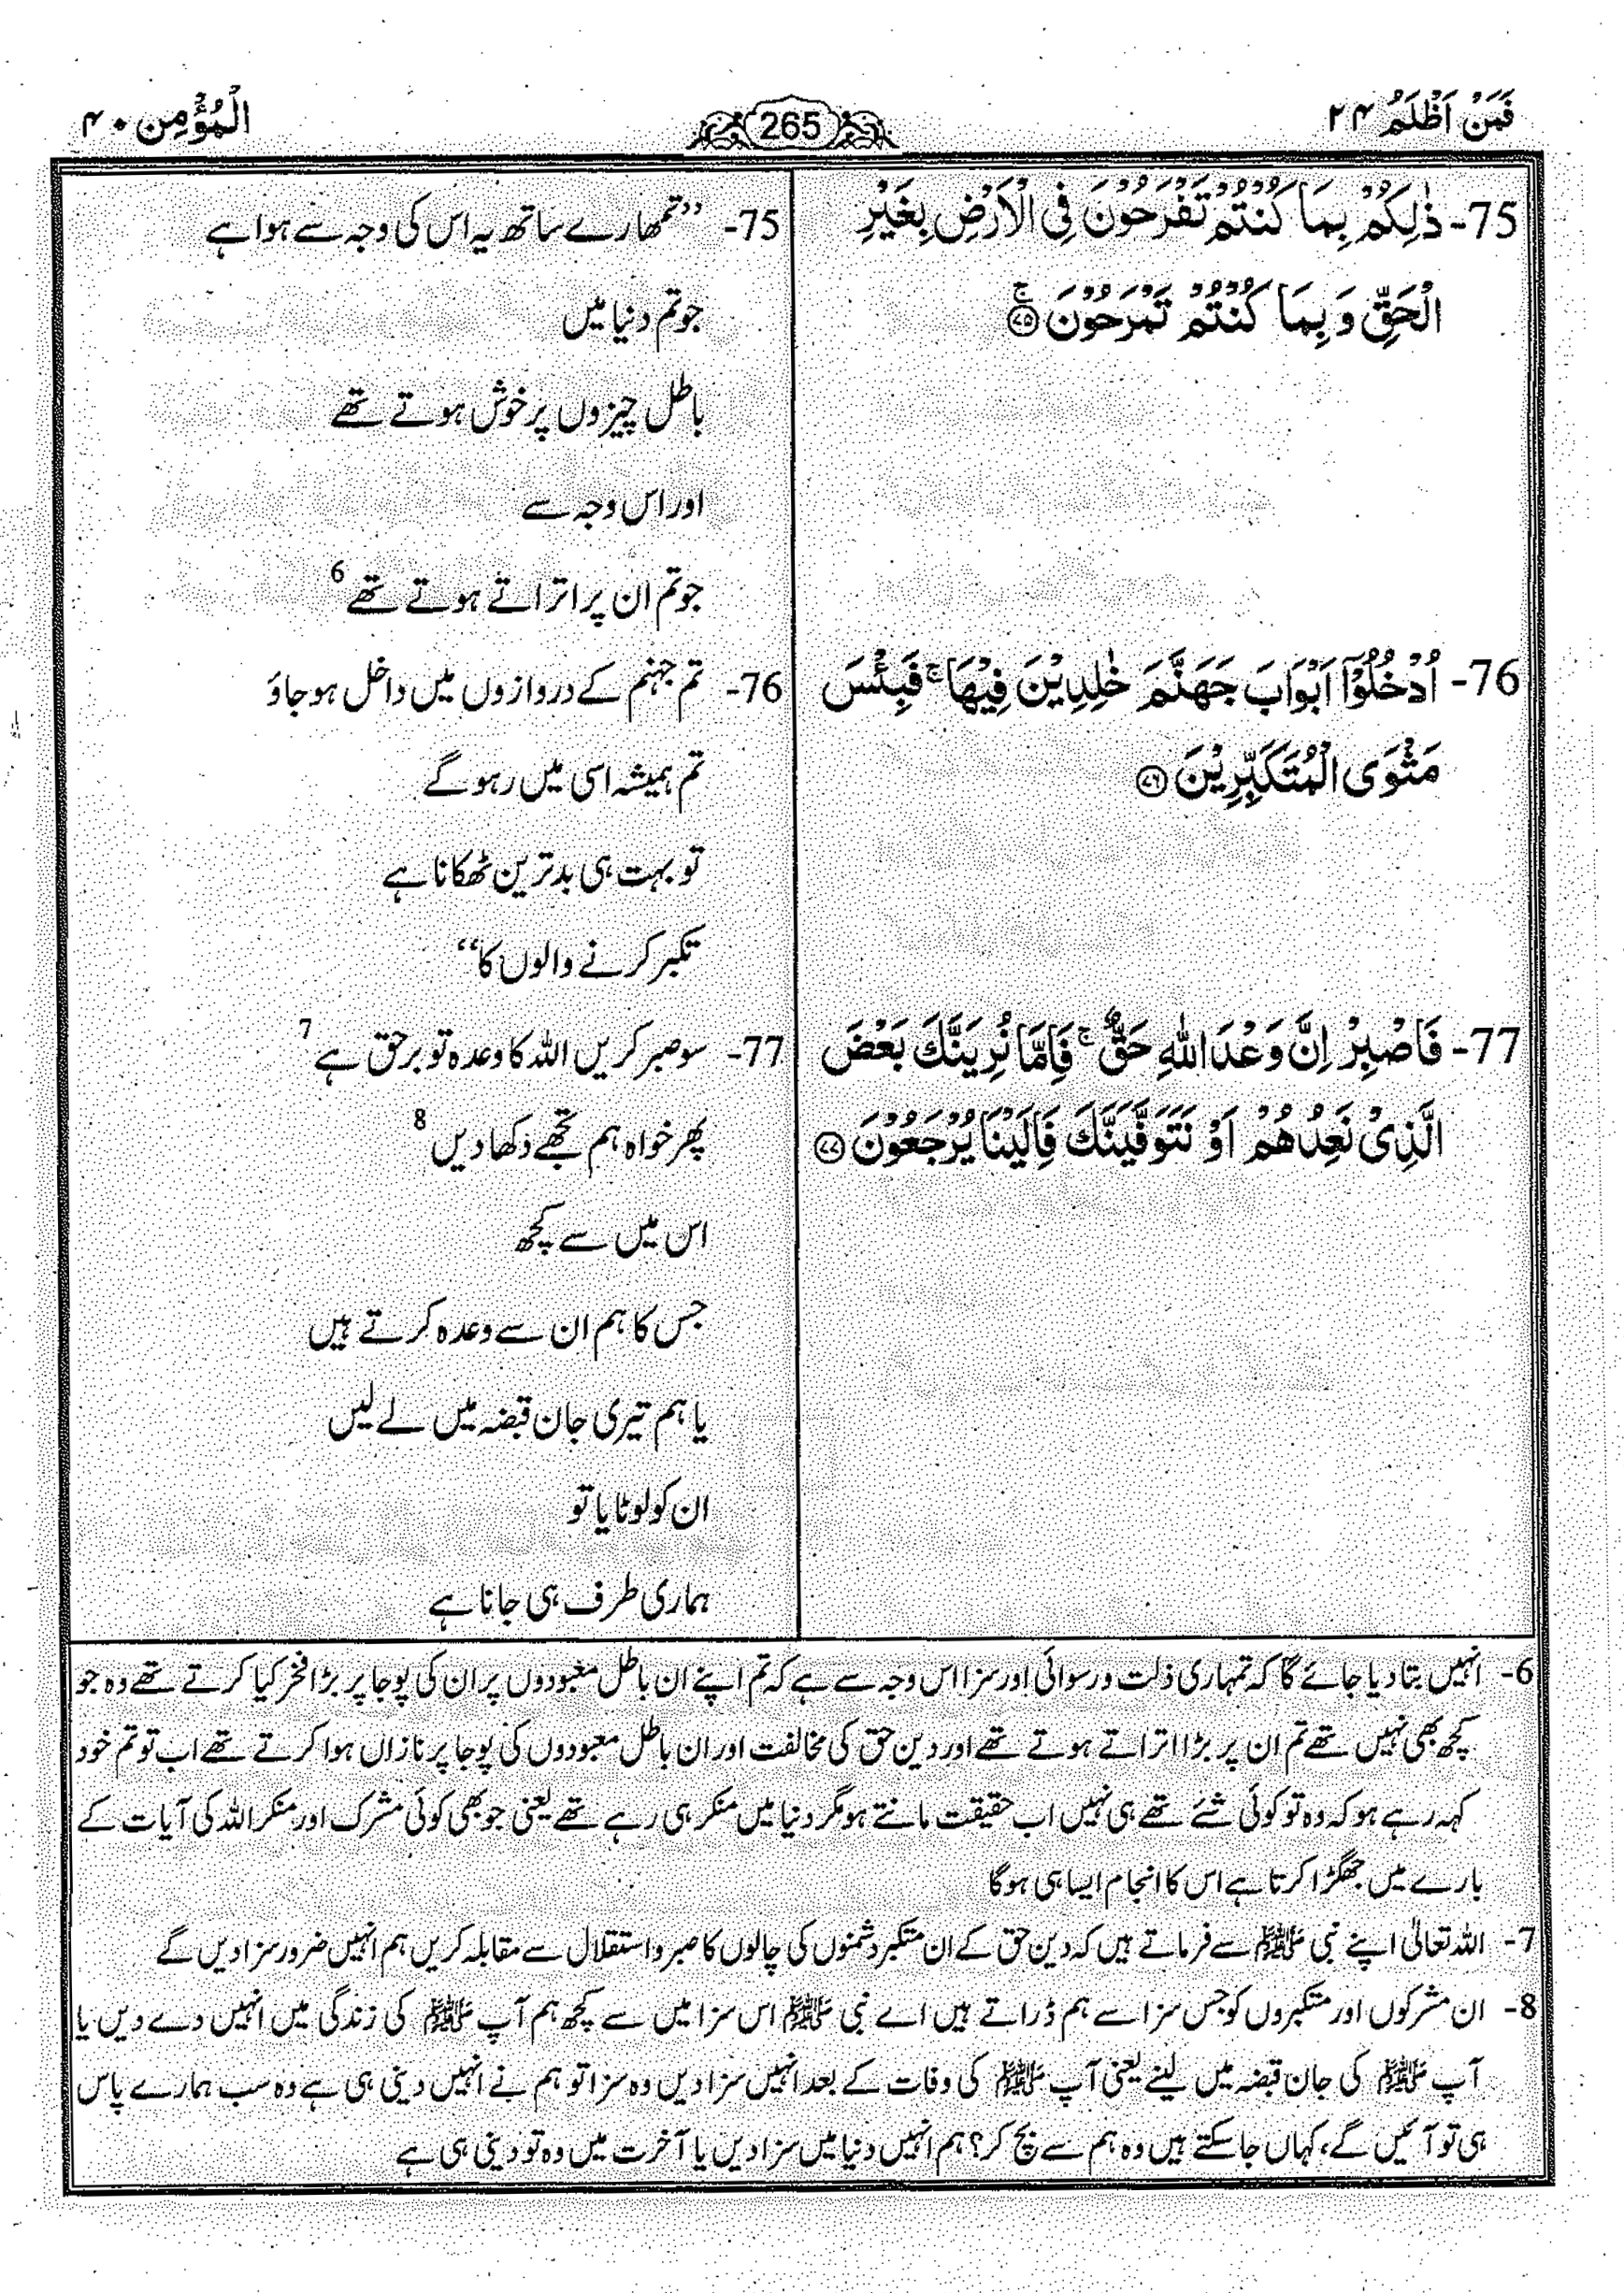 فَمَنْ اَظْلَمُ ۲۴
265
الْمُؤْمِن ۴۰
75- ذٰلِكُمْ بِمَا كُنْتُمْ تَفْرَحُوْنَ فِى الْاَرْضِ بِغَيْرِ
الْحَقِّ وَ بِمَا كُنْتُمْ تَمْرَحُوْنَ ۚ ۷۵
75- ’’تمھارے ساتھ یہ اس کی وجہ سے ہوا ہے
جو تم دنیا میں
باطل چیزوں پر خوش ہوتے تھے
اور اس وجہ سے
جو تم ان پر اتراتے ہوتے تھے 6
76- اُدْخُلُوْٓا اَبْوَابَ جَهَنَّمَ خٰلِدِيْنَ فِيْهَا ۚ فَبِئْسَ
مَثْوَى الْمُتَكَبِّرِيْنَ ۷۶
76- تم جہنم کے دروازوں میں داخل ہو جاؤ
تم ہمیشہ اسی میں رہو گے
تو بہت ہی بدترین ٹھکانا ہے
تکبر کرنے والوں کا‘‘
77- فَاصْبِرْ اِنَّ وَعْدَ اللّٰهِ حَقٌّ ۚ فَاِمَّا نُرِيَنَّكَ بَعْضَ
الَّذِىْ نَعِدُهُمْ اَوْ نَتَوَفَّيَنَّكَ فَاِلَيْنَا يُرْجَعُوْنَ ۷۷
77- سو صبر کریں اللہ کا وعدہ تو برحق ہے 7
پھر خواہ ہم تجھے دکھا دیں 8
اس میں سے کچھ
جس کا ہم ان سے وعدہ کرتے ہیں
یا ہم تیری جان قبضہ میں لے لیں
ان کو لوٹایا تو
ہماری طرف ہی جانا ہے
6- انہیں بتا دیا جائے گا کہ تمہاری ذلت و رسوائی اور سزا اس وجہ سے ہے کہ تم اپنے ان باطل معبودوں پر ان کی پوجا پر بڑا فخر کیا کرتے تھے وہ جو
کچھ بھی نہیں تھے تم ان پر بڑا اتراتے ہوتے تھے اور دین حق کی مخالفت اور ان باطل معبودوں کی پوجا پر نازاں ہوا کرتے تھے اب تو تم خود
کہہ رہے ہو کہ وہ تو کوئی شئے تھے ہی نہیں اب حقیقت مانتے ہو مگر دنیا میں منکر ہی رہے تھے یعنی جو بھی کوئی مشرک اور منکر اللہ کی آیات کے
بارے میں جھگڑا کرتا ہے اس کا انجام ایسا ہی ہوگا
7- اللہ تعالیٰ اپنے نبی ﷺ سے فرماتے ہیں کہ دین حق کے ان متکبر دشمنوں کی چالوں کا صبر و استقلال سے مقابلہ کریں ہم انہیں ضرور سزا دیں گے
8- ان مشرکوں اور متکبروں کو جس سزا سے ہم ڈراتے ہیں اے نبی ﷺ اس سزا میں سے کچھ ہم آپ ﷺ کی زندگی میں انہیں دے دیں یا
آپ ﷺ کی جان قبضہ میں لینے یعنی آپ ﷺ کی وفات کے بعد انہیں سزا دیں وہ سزا تو ہم نے انہیں دینی ہی ہے وہ سب ہمارے پاس
ہی تو آئیں گے، کہاں جا سکتے ہیں وہ ہم سے بچ کر؟ ہم انہیں دنیا میں سزا دیں یا آخرت میں وہ تو دینی ہی ہے